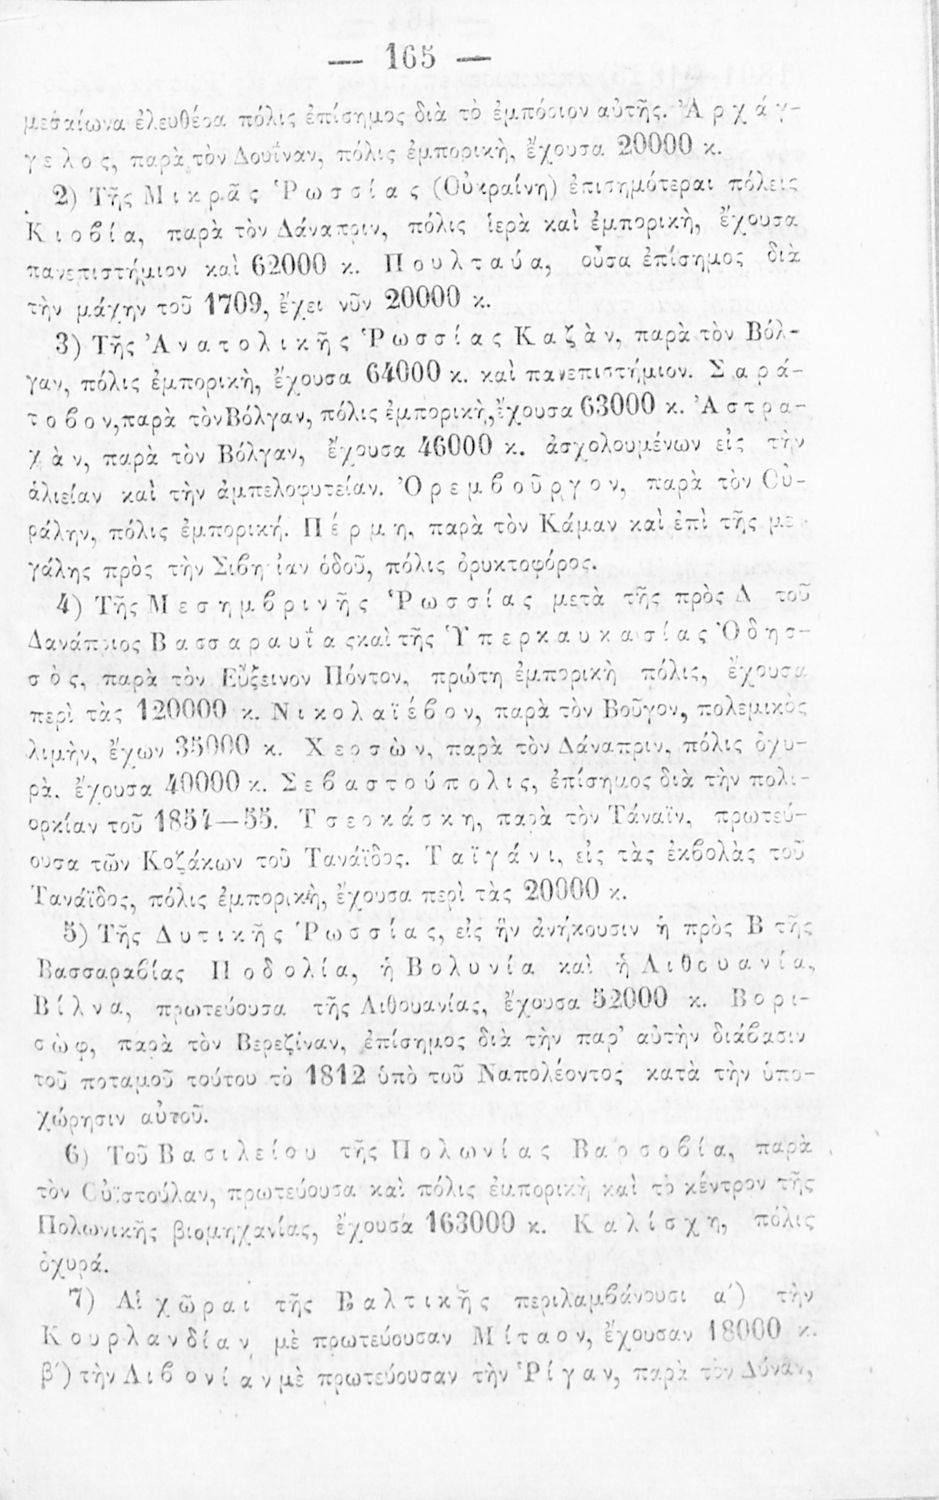 — 165 —
μεσαίωνα ἐλευθέρα πόλις ἐπίσημος διὰ τὸ ἐμπόριον αὐτῆς. Ἀρχάγ-
γελος, παρὰ τὸν Δουΐναν, πόλις ἐμπορικὴ, ἔχουσα 20000 κ.
2) Τῆς Μικρᾶς Ῥωσσίας (Οὐκραίνη) ἐπισημότεραι πόλεις
Κιοβία, παρὰ τὸν Δάναπριν, πόλις ἱερὰ καὶ ἐμπορικὴ, ἔχουσα
πανεπιστήμιον καὶ 62000 κ. Πουλταύα, οὖσα ἐπίσημος διὰ
τὴν μάχην τοῦ 1709, ἔχει νῦν 20000 κ.
3) Τῆς Ἀνατολικῆς Ῥωσσίας Καζὰν, παρὰ τὸν Βόλ-
γαν, πόλις ἐμπορικὴ, ἔχουσα 64000 κ. καὶ πανεπιστήμιον. Σαρά-
τοβον, παρὰ τὸν Βόλγαν, πόλις ἐμπορικὴ, ἔχουσα 63000 κ. Ἀστρα-
χὰν, παρὰ τὸν Βόλγαν, ἔχουσα 46000 κ. ἀσχολουμένων εἰς τὴν
ἁλιείαν καὶ τὴν ἀμπελοφυτείαν. Ὀρεμβοῦργον, παρὰ τὸν Οὐ-
ράλην, πόλις ἐμπορική. Πέρμη, παρὰ τὸν Κάμαν καὶ ἐπὶ τῆς με-
γάλης πρὸς τὴν Σιβη ίαν ὁδοῦ, πόλις ὀρυκτοφόρος.
4) Τῆς Μεσημβρινῆς Ῥωσσίας μετὰ τῆς πρὸς Δ τοῦ
Δανάπριος Βασσαραυΐας καὶ τῆς Ὑπερκαυκασίας Ὀδησ-
σὸς, παρὰ τὸν Εὔξεινον Πόντον, πρώτη ἐμπορικὴ πόλις, ἔχουσα
περὶ τὰς 120000 κ. Νικολαϊέβον, παρὰ τὸν Βοῦγον, πολεμικὸς
λιμὴν, ἔχων 35000 κ. Χερσὼν, παρὰ τὸν Δάναπριν, πόλις ὀχυ-
ρὰ. ἔχουσα 40000 κ. Σεβαστούπολις, ἐπίσημος διὰ τὴν πολι-
ορκίαν τοῦ 1854—55. Τσερκάσκη, παρὰ τὸν Τάναϊν, πρωτεύ-
ουσα τῶν Κοζάκων τοῦ Τανάϊδος. Ταϊγάνι, εἰς τὰς ἐκβολὰς τοῦ
Τανάϊδος, πόλις ἐμπορικὴ, ἔχουσα περὶ τὰς 20000 κ.
5) Τῆς Δυτικῆς Ῥωσσίας, εἰς ἣν ἀνήκουσιν ἡ πρὸς Β τῆς
Βασσαραβίας Ποδολία, ἡ Βολυνία καὶ ἡ Λιθουανία,
Βίλνα, πρωτεύουσα τῆς Λιθουανίας, ἔχουσα 52000 κ. Βορι-
σὼφ, παρὰ τὸν Βερεζίναν, ἐπίσημος διὰ τὴν παρ’ αὐτὴν διάβασιν
τοῦ ποταμοῦ τούτου τὸ 1812 ὑπὸ τοῦ Ναπολέοντος κατὰ τὴν ὑπο-
χώρησιν αὐτοῦ.
6) Τοῦ Βασιλείου τῆς Πολωνίας Βαρσοβία, παρὰ
τὸν Οὐϊστούλαν, πρωτεύουσα καὶ πόλις ἐμπορικὴ καὶ τὸ κέντρον τῆς
Πολωνικῆς βιομηχανίας, ἔχουσα 163000 κ. Καλίσχη, πόλις
ὀχυρά.
7) Αἱ χῶραι τῆς Βαλτικῆς περιλαμβάνουσι α΄) τὴν
Κουρλανδίαν μὲ πρωτεύουσαν Μίταον, ἔχουσαν 18000 κ.
β΄) τὴν Λιβονίαν μὲ πρωτεύουσαν τὴν Ῥίγαν, παρὰ τὸν Δύναν,